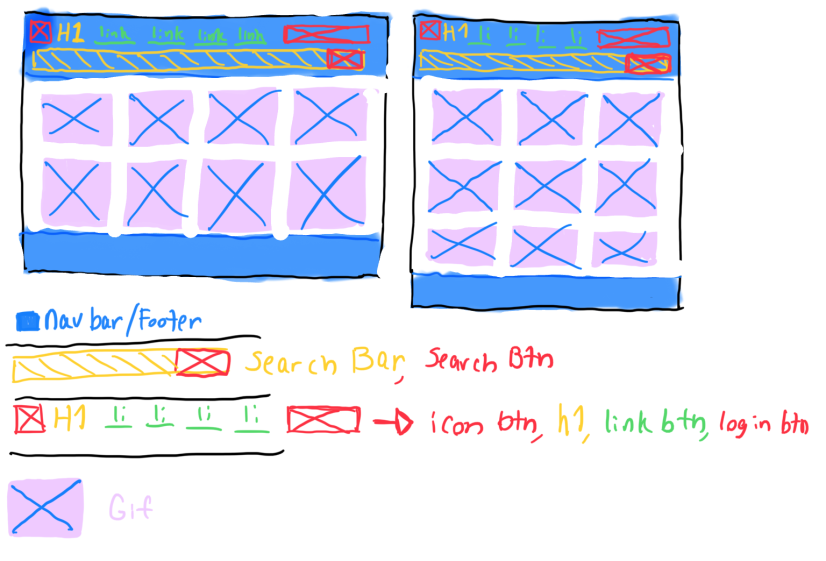 H1 link link link link
H1 li li li li
Nav bar/Footer
Search Bar, Search Btn
H1 li li li li → icon btn, h1, link btn, login btn
Gif